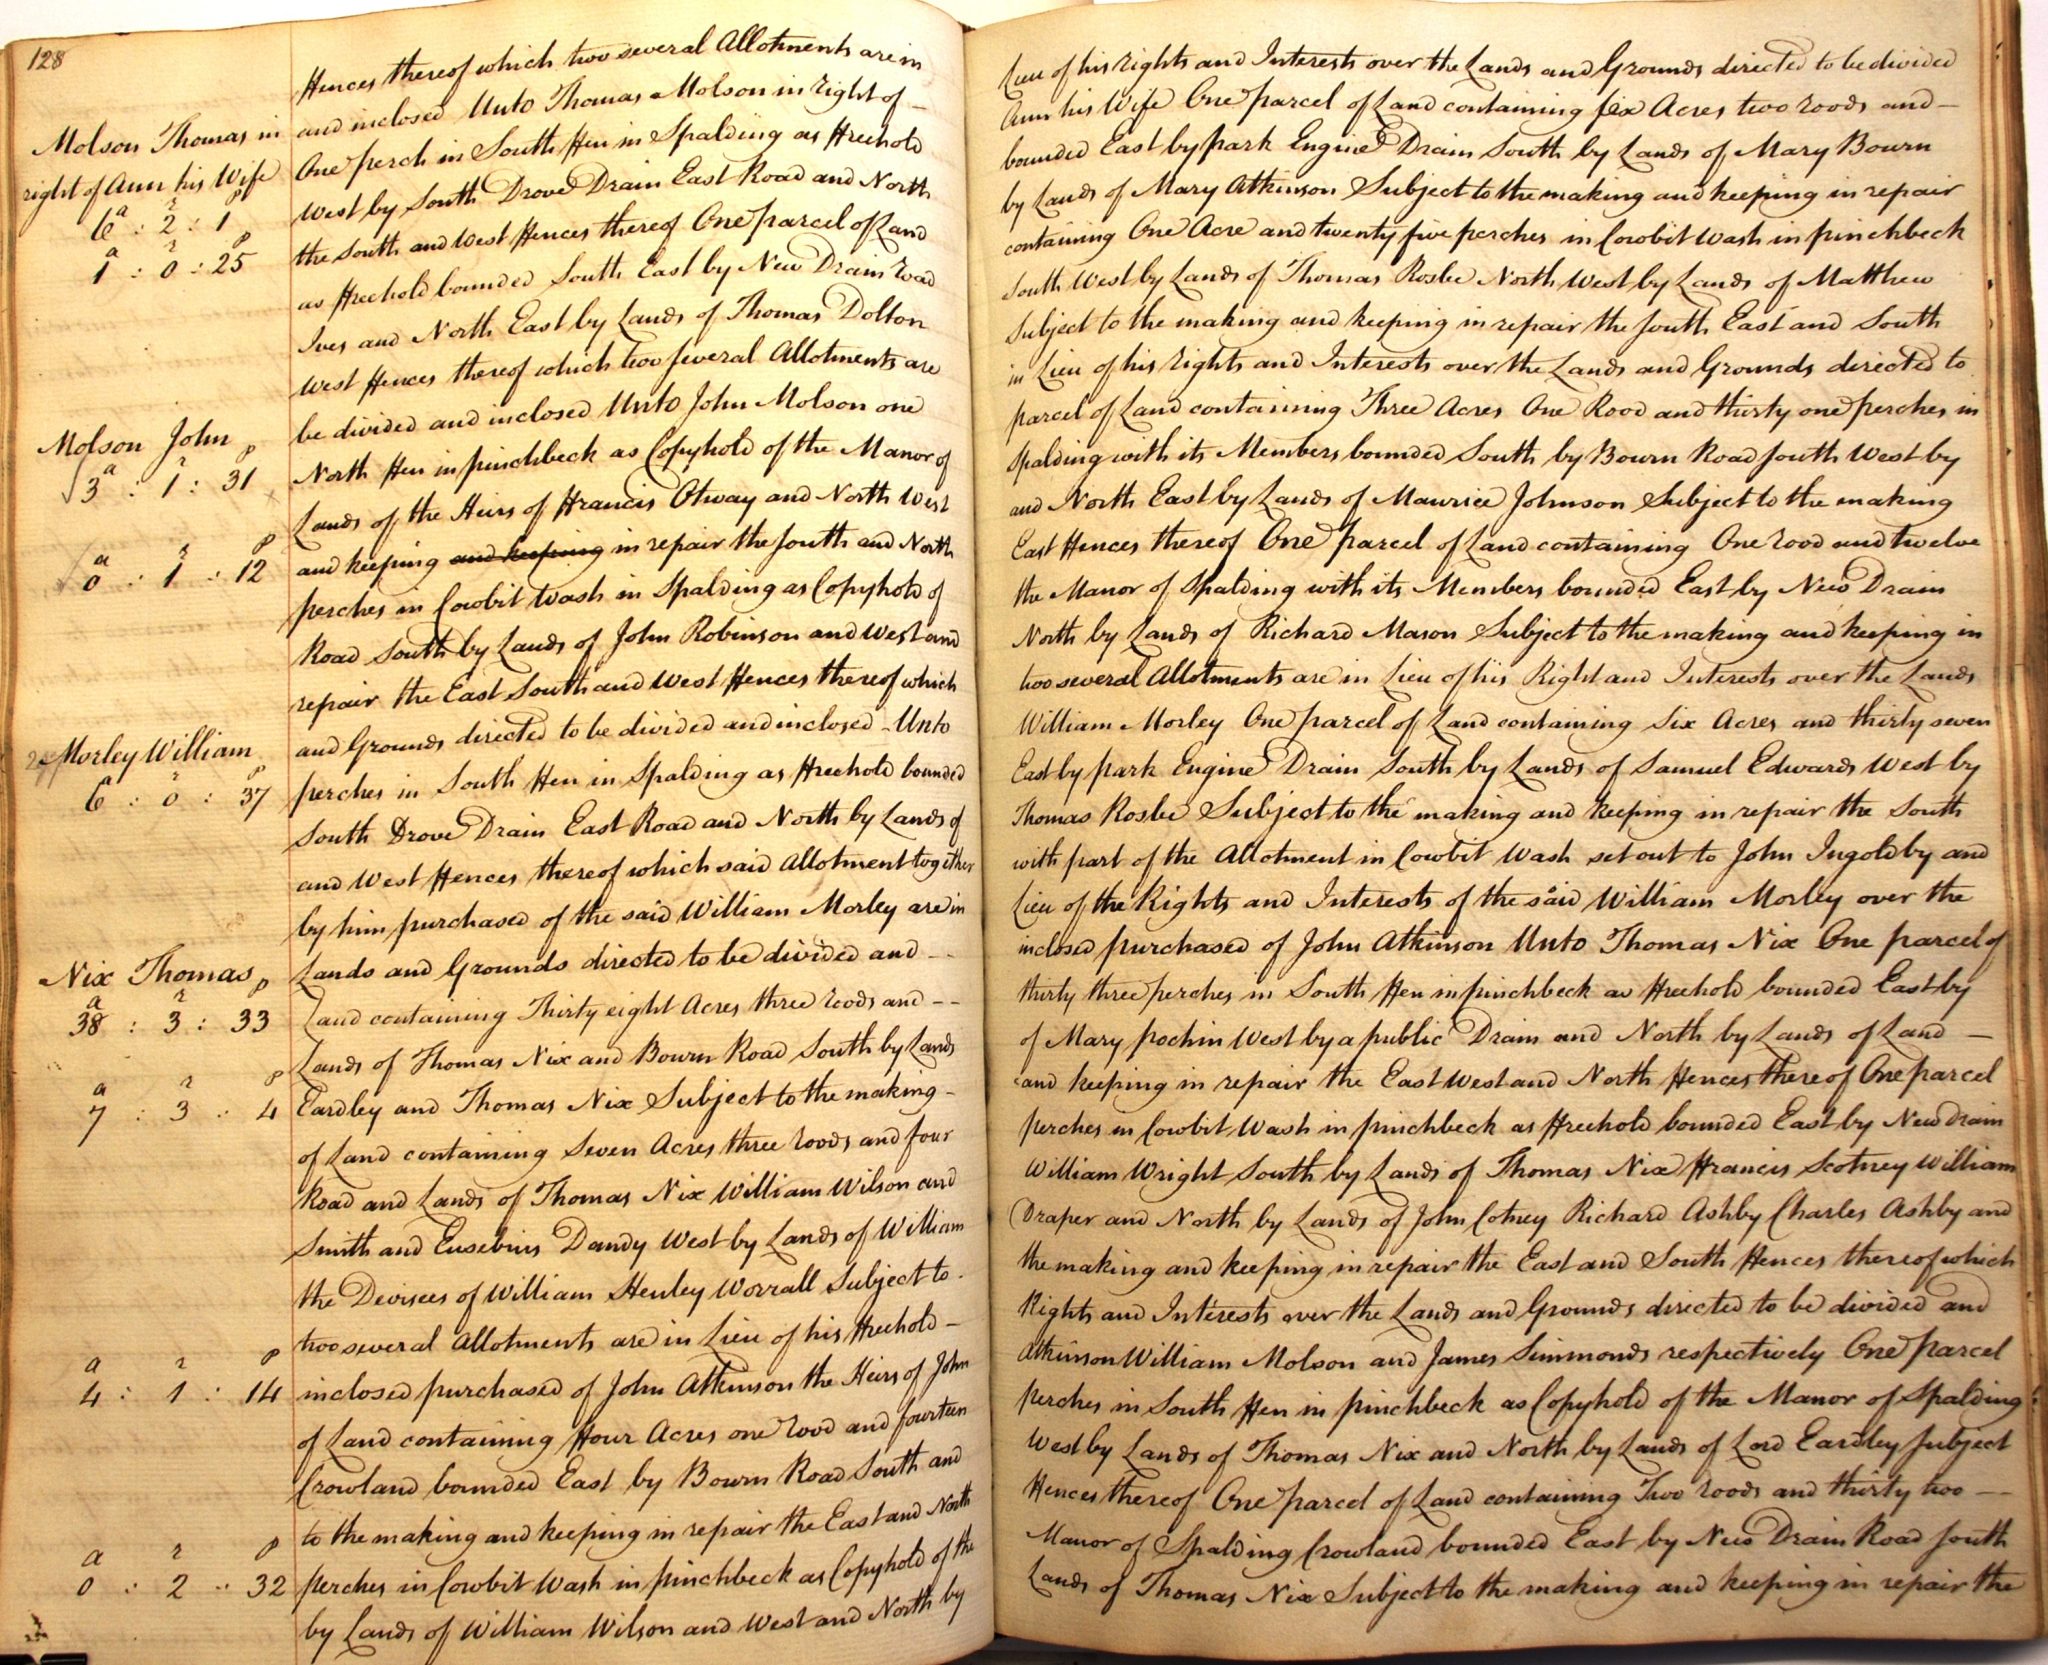 128
Fences thereof which two several Allotments are in Lieu of his rights and Interests over the Lands and Grounds directed to be divided
Molson Thomas in
right of Ann his Wife
a r p
6 : 2 : 1
a r p
1 : 0 : 25
and inclosed Unto Thomas Molson in right of Ann his Wife One parcel of Land containing six Acres two roods and
One perch in South Fen in Spalding as Freehold bounded East by park Engine Drain South by Lands of Mary Bourn
West by South Drove Drain East Road and North by Lands of Mary Atkinson Subject to the making and keeping in repair
the South and West Fences thereof One parcel of Land containing One Acre and twenty five perches in Cowbit Wash in pinchbeck
as Freehold bounded South East by New Drain road South West by Lands of Thomas Rosbe North West by Lands of Matthew
Ives and North East by Lands of Thomas Dolton Subject to the making and keeping in repair the South East and South
West Fences thereof which two several Allotments are in Lieu of his rights and Interests over the Lands and Grounds directed to
Molson John
a r p
3 : 1 : 31
a r p
0 : 1 : 12
be divided and inclosed Unto John Molson one parcel of Land containing Three Acres One Rood and thirty one perches in
North Fen in pinchbeck as Copyhold of the Manor of Spalding with its Members bounded South by Bourn Road South West by
Lands of the Heirs of Francis Otway and North West and North East by Lands of Maurice Johnson Subject to the making
and keeping and keeping in repair the South and North East Fences thereof One parcel of Land containing One rood and twelve
perches in Cowbit Wash in Spalding as Copyhold of the Manor of Spalding with its Members bounded East by New Drain
Road South by Lands of John Robinson and West and North by Lands of Richard Mason Subject to the making and keeping in
repair the East South and West Fences thereof which two several Allotments are in Lieu of his Right and Interests over the Lands
Morley William
a r p
6 : 0 : 37
and Grounds directed to be divided and inclosed Unto William Morley One parcel of Land containing Six Acres and thirty seven
perches in South Fen in Spalding as Freehold bounded East by park Engine Drain South by Lands of Samuel Edwards West by
South Drove Drain East Road and North by Lands of Thomas Rosbe Subject to the making and keeping in repair the South
and West Fences thereof which said Allotment together with part of the Allotment in Cowbit Wash set out to John Ingoldby and
by him purchased of the said William Morley are in Lieu of the Rights and Interests of the said William Morley over the
Nix Thomas
a r p
38 : 3 : 33
a r p
7 : 3 : 4
Lands and Grounds directed to be divided and inclosed purchased of John Atkinson Unto Thomas Nix One parcel of
Land containing Thirty eight Acres three roods and thirty three perches in South Fen in pinchbeck as Freehold bounded East by
Lands of Thomas Nix and Bourn Road South by Lands of Mary pochin West by a public Drain and North by Lands of Land
Eardley and Thomas Nix Subject to the making and keeping in repair the East West and North Fences thereof One parcel
of Land containing Seven Acres three roods and four perches in Cowbit Wash in pinchbeck as Freehold bounded East by New drain
Road and Lands of Thomas Nix William Wilson and William Wright South by Lands of Thomas Nix Francis Scotney William
Smith and Eusebius Dandy West by Lands of William Draper and North by Lands of John Cotney Richard Ashby Charles Ashby and
the Devisees of William Henley Worrall Subject to the making and keeping in repair the East and South Fences thereof which
two several Allotments are in Lieu of his Freehold Rights and Interests over the Lands and Grounds directed to be divided and
a r p
4 : 1 : 14
inclosed purchased of John Atkinson the Heirs of John Atkinson William Molson and James Simmonds respectively One parcel
of Land containing Four Acres one rood and fourteen perches in South Fen in pinchbeck as Copyhold of the Manor of Spalding
Crowland bounded East by Bourn Road South and West by Lands of Thomas Nix and North by Lands of Lord Eardley Subject
to the making and keeping in repair the East and North Fences thereof One parcel of Land containing Two roods and thirty two
a r p
0 : 2 : 32
perches in Cowbit Wash in pinchbeck as Copyhold of the Manor of Spalding Crowland bounded East by New Drain Road South
by Lands of William Wilson and West and North by Lands of Thomas Nix Subject to the making and keeping in repair the